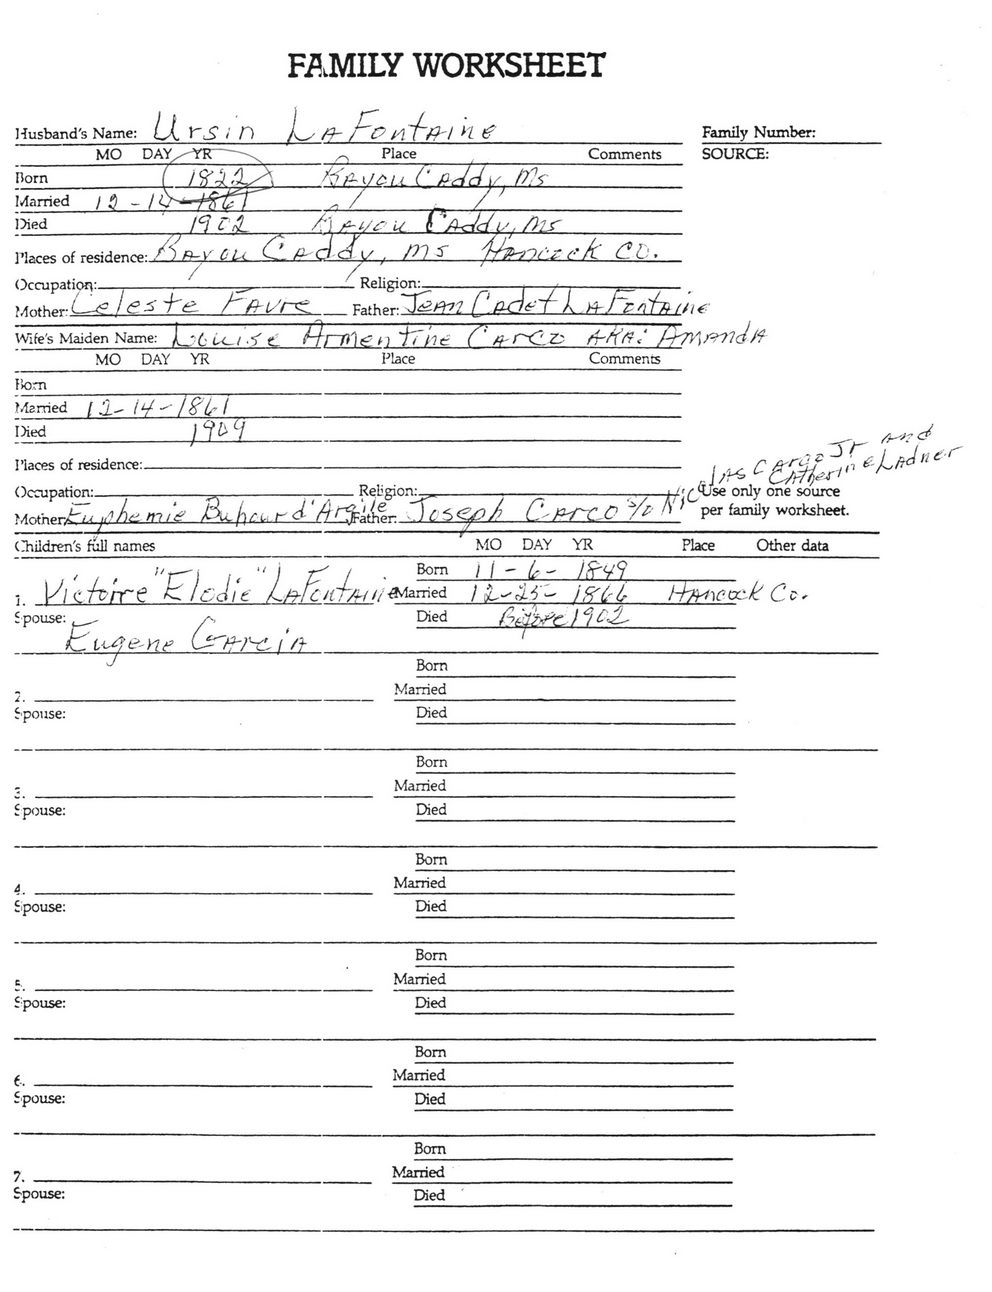 FAMILY WORKSHEET
Husband's Name: Ursin LaFontaine Family Number:
MO DAY YR Place Comments SOURCE:
Born 1822 Bayou Caddy, Ms
Married 12-14-1861
Died 1902 Bayou Caddy, Ms
Places of residence: Bayou Caddy, Ms Hancock Co.
Occupation: Religion:
Mother: Celeste Favre Father: Jean Cadet LaFontaine
Wife's Maiden Name: Louise Armentine Carco AKA: Amanda
MO DAY YR Place Comments
Born
Married 12-14-1861
Died 1909
Places of residence:
Occupation: Religion:
Mother: Euphemie Buhour d'Argile Father: Joseph Carco S/O Nicolas Cargo Jr and Catherine Ladner
Use only one source
per family worksheet.
Children's full names MO DAY YR Place Other data
Born 11-6-1849
1. Victoire "Elodie" LaFontaine Married 12-25-1866 Hancock Co.
Spouse: Eugene Garcia Died Before 1902
Born
2. Married
Spouse: Died
Born
3. Married
Spouse: Died
Born
4. Married
Spouse: Died
Born
5. Married
Spouse: Died
Born
6. Married
Spouse: Died
Born
7. Married
Spouse: Died